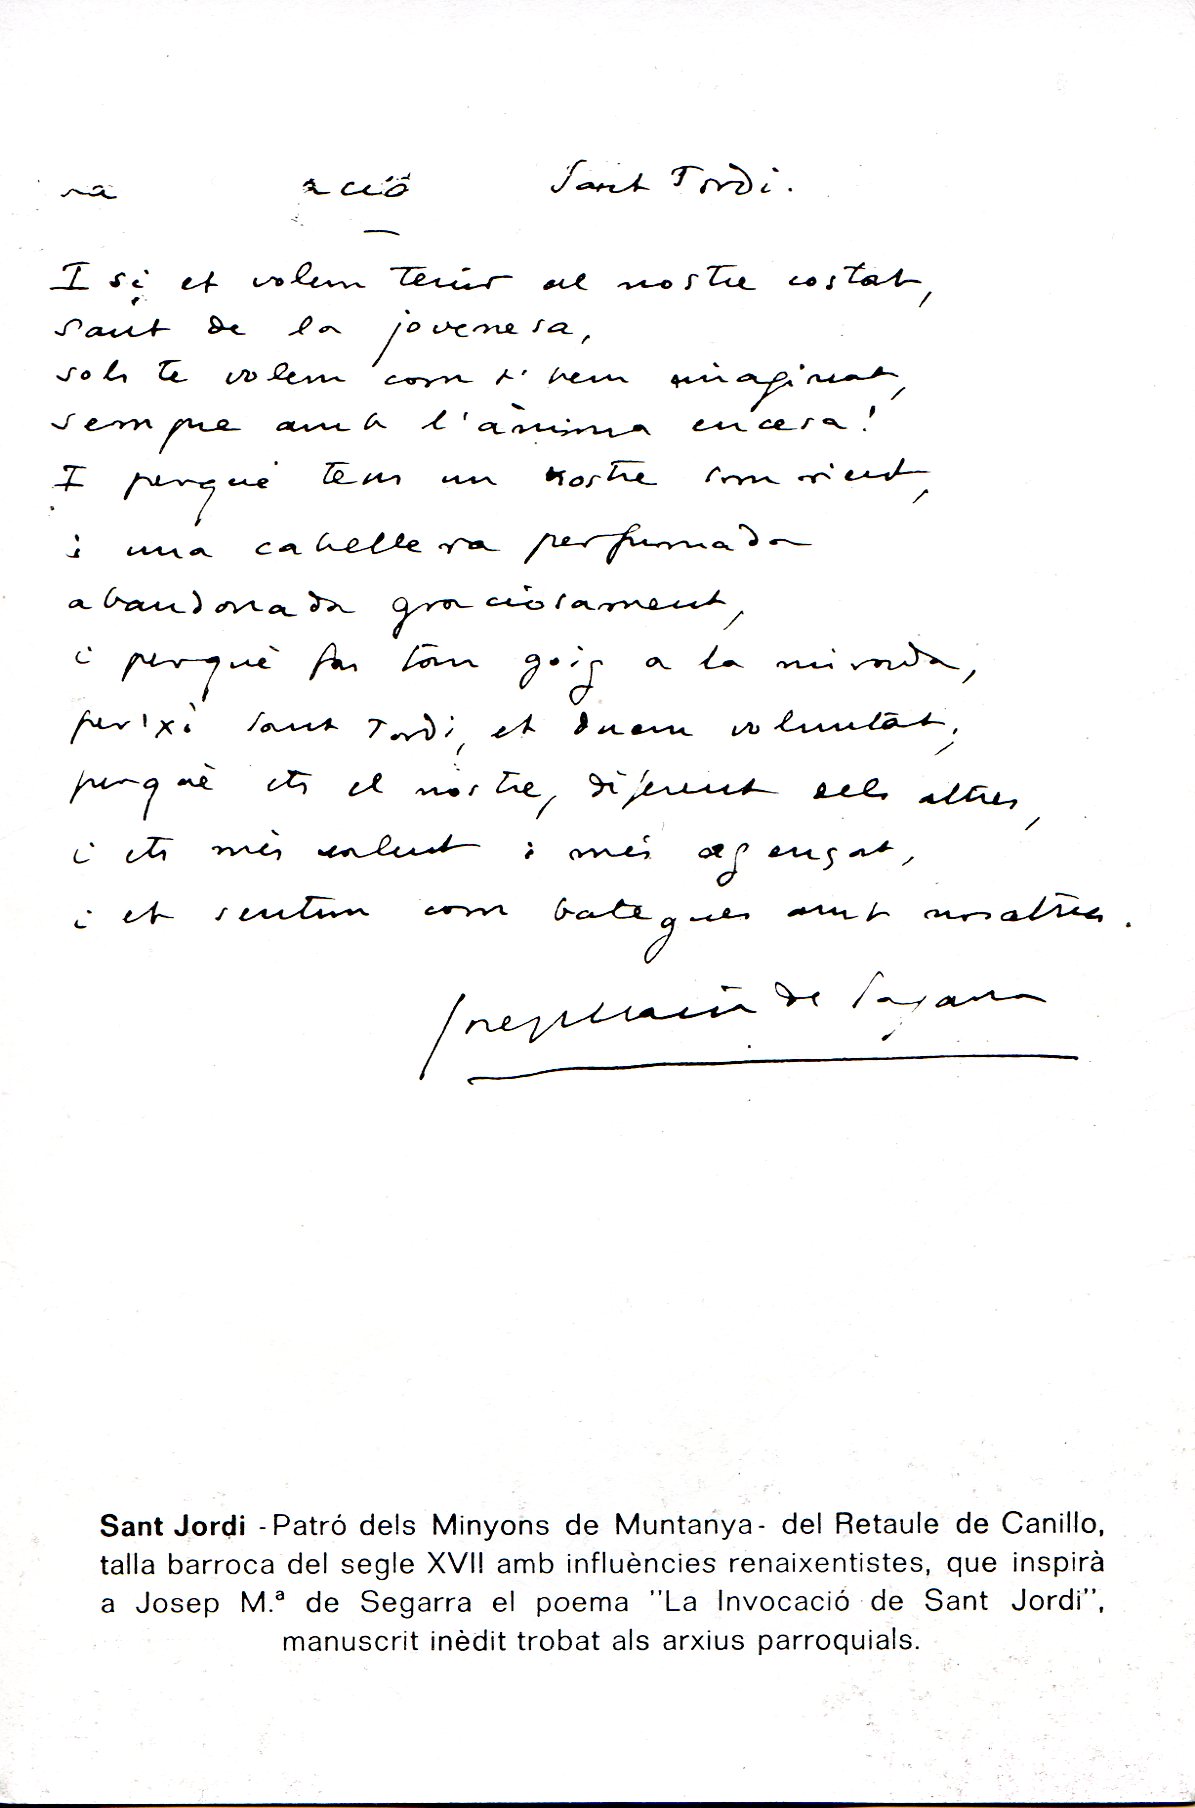 na ació Sant Jordi.
I si et volem tenir al nostre costat,
sant de la jovenesa,
sols te volem com t'hem imaginat,
sempre amb l'ànima encesa!
I perquè tens un rostre somrient,
i una cabellera perfumada
abandonada graciosament,
i perquè fas tan goig a la mirada,
per'xò Sant Jordi, et duem voluntat;
perquè ets el nostre, diferent dels altres,
i ets més valent i més agençat,
i et sentim com bategues amb nosaltres.
Josep Maria de Sagarra
Sant Jordi -Patró dels Minyons de Muntanya- del Retaule de Canillo,
talla barroca del segle XVII amb influències renaixentistes, que inspirà
a Josep M.ª de Segarra el poema "La Invocació de Sant Jordi",
manuscrit inèdit trobat als arxius parroquials.